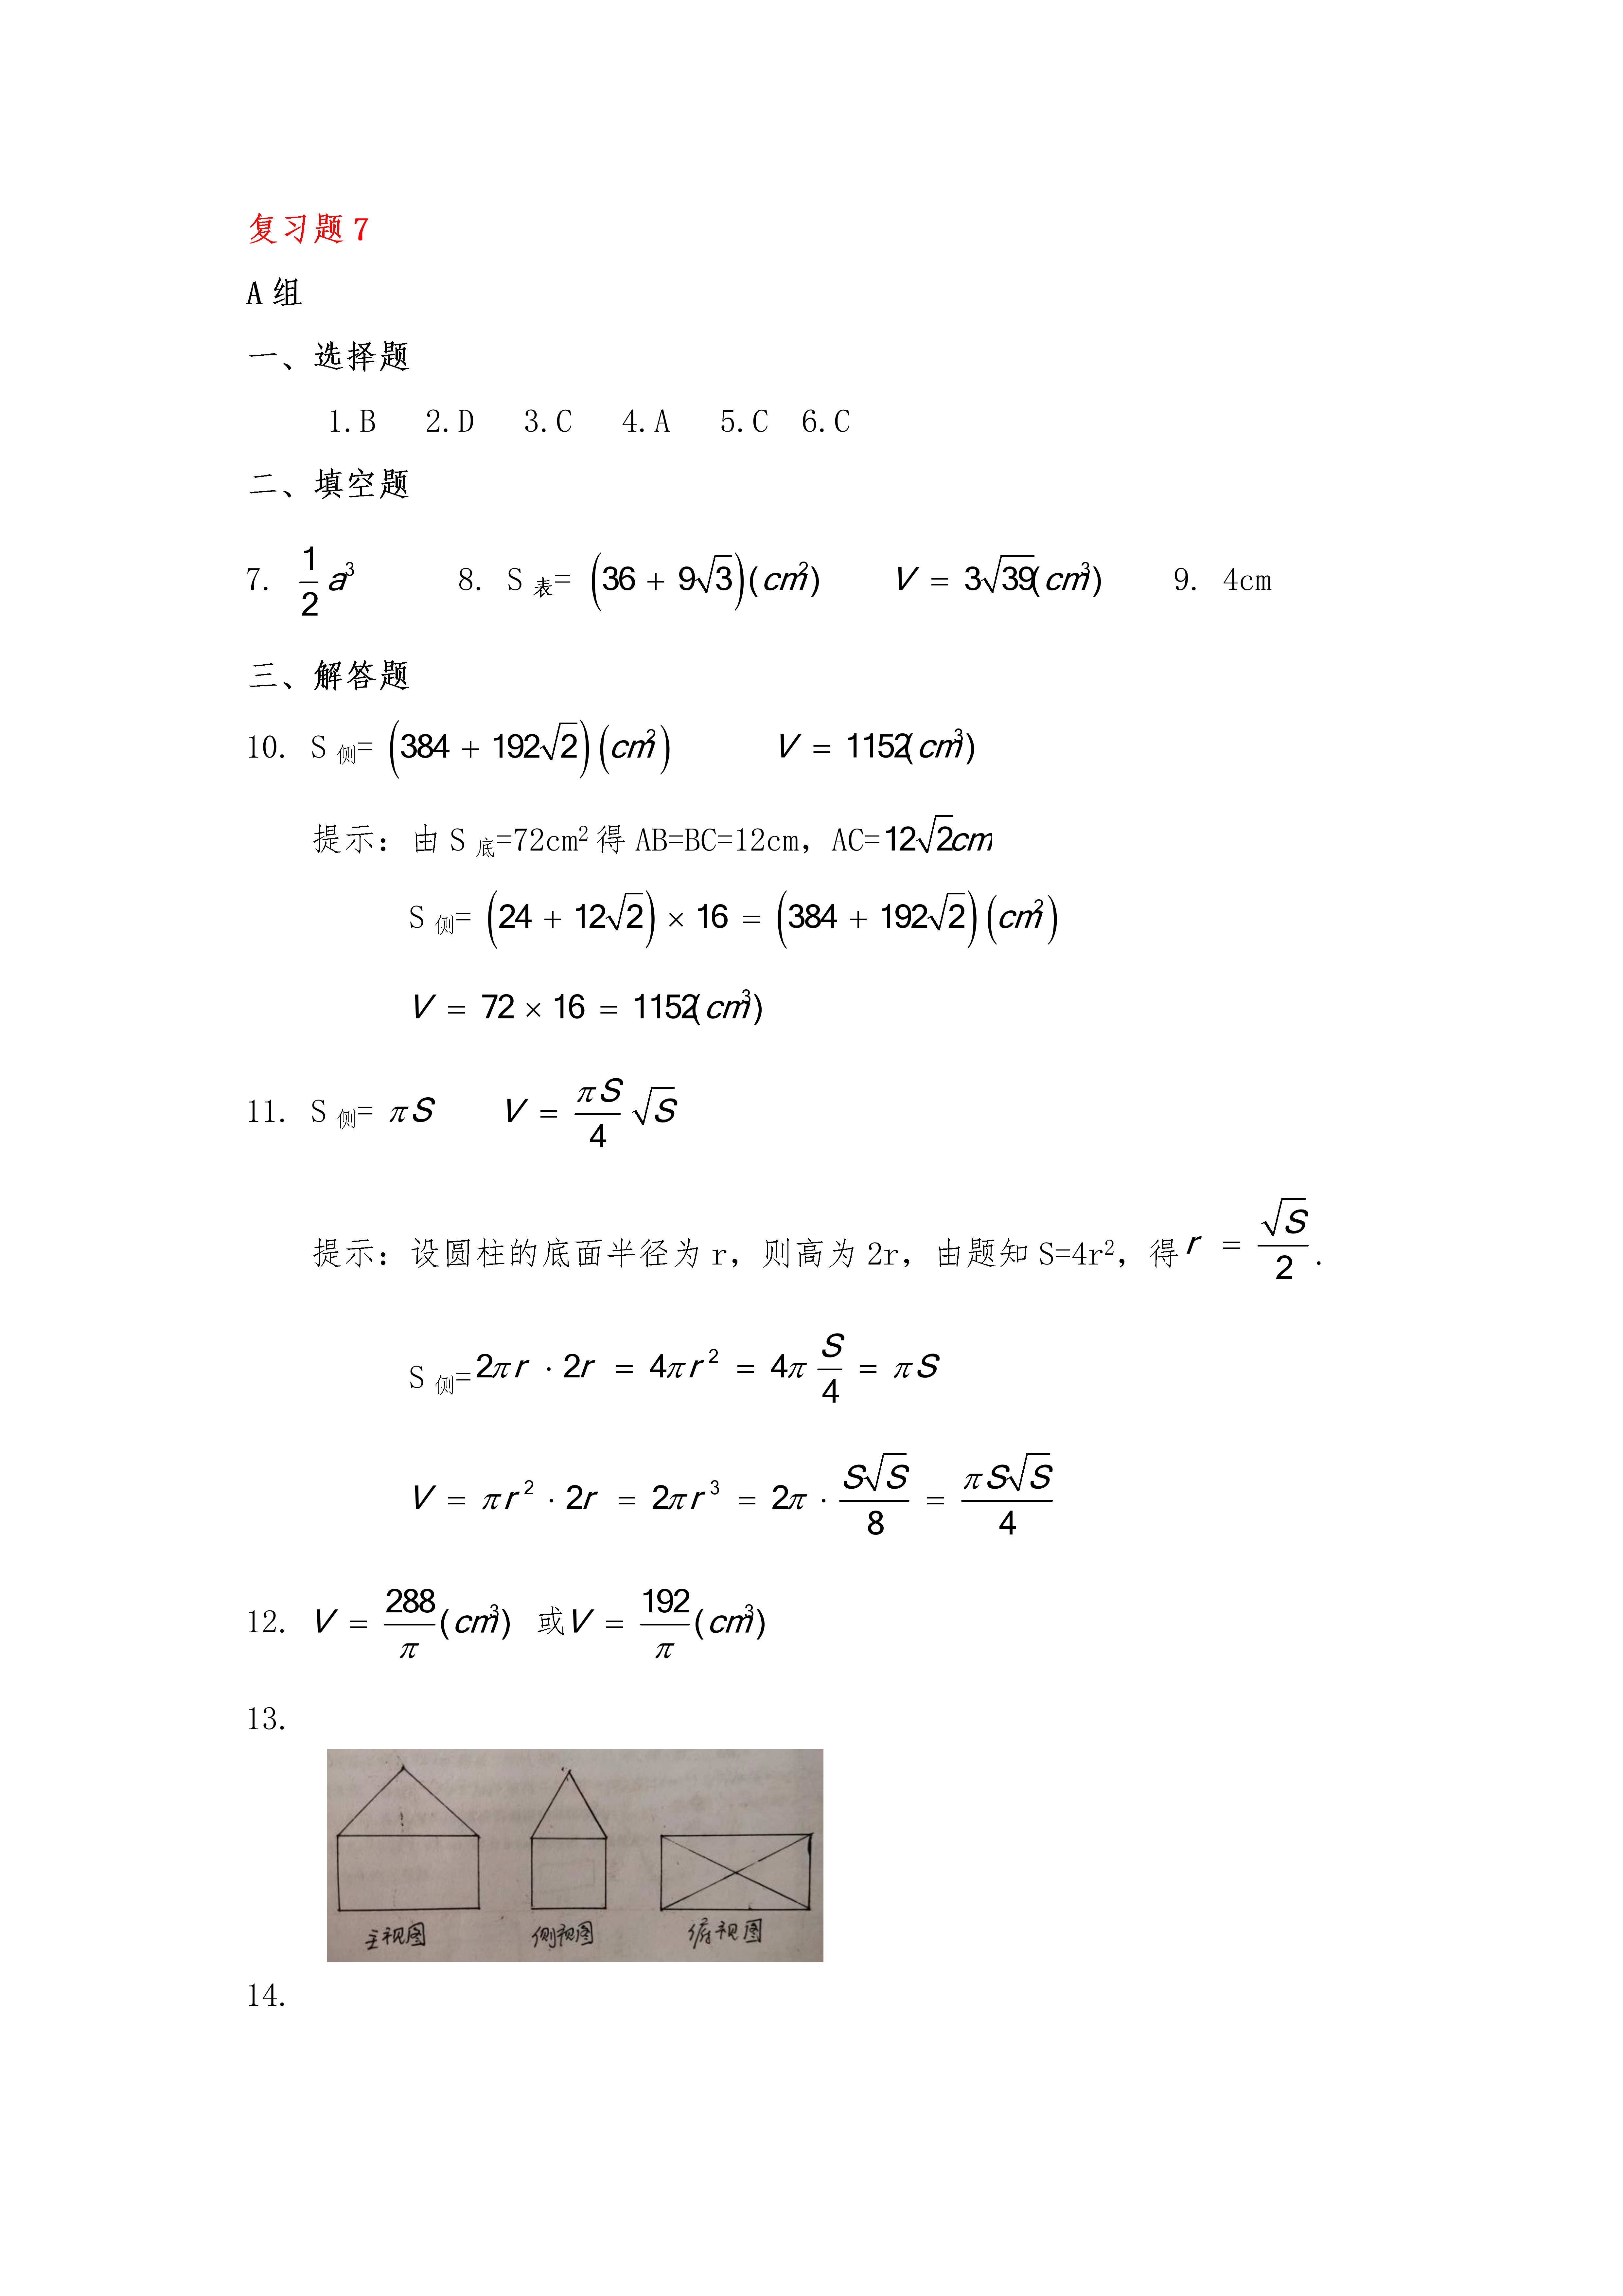 复习题 7
A 组
一、选择题
1.B 2.D 3.C 4.A 5.C 6.C
二、填空题
7. \frac{1}{2}a³ 8. S表=(36+9√3)(cm²) V=3√39(cm³) 9. 4cm
三、解答题
10. S侧=(384+192√2)(cm²) V=1152(cm³)
提示：由 S底=72cm²得 AB=BC=12cm，AC=12√2cm
S侧=(24+12√2)×16=(384+192√2)(cm²)
V=72×16=1152(cm³)
11. S侧=πS V=\frac{πS}{4}√S
提示：设圆柱的底面半径为 r，则高为 2r，由题知 S=4r²，得 r=\frac{√S}{2}.
S侧=2πr·2r=4πr²=4π\frac{S}{4}=πS
V=πr²·2r=2πr³=2π·\frac{S√S}{8}=\frac{πS√S}{4}
12. V=\frac{288}{π}(cm³) 或V=\frac{192}{π}(cm³)
13.
主视图 侧视图 俯视图
14.